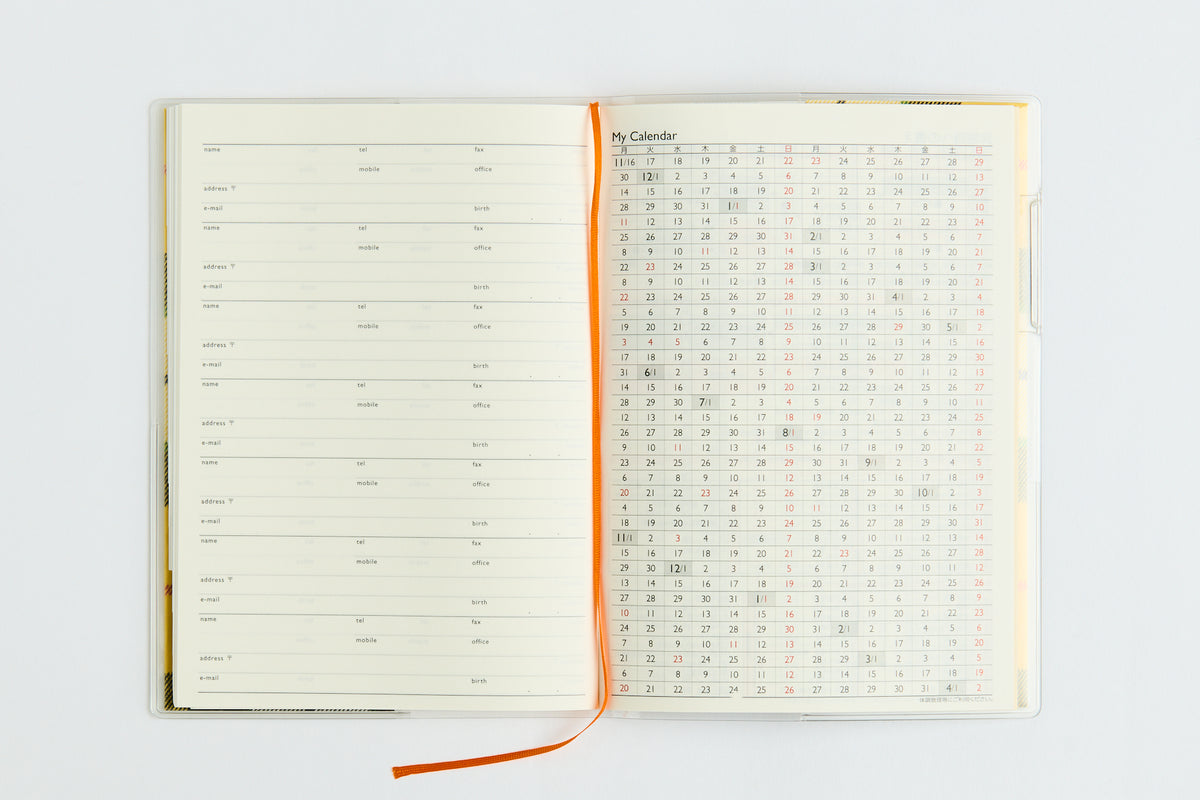 name tel fax
mobile office
address 〒
e-mail birth
name tel fax
mobile office
address 〒
e-mail birth
name tel fax
mobile office
address 〒
e-mail birth
name tel fax
mobile office
address 〒
e-mail birth
name tel fax
mobile office
address 〒
e-mail birth
name tel fax
mobile office
address 〒
e-mail birth
name tel fax
mobile office
address 〒
e-mail birth
My Calendar
月 火 水 木 金 土 日 月 火 水 木 金 土 日
11/16 17 18 19 20 21 22 23 24 25 26 27 28 29
30 12/1 2 3 4 5 6 7 8 9 10 11 12 13
14 15 16 17 18 19 20 21 22 23 24 25 26 27
28 29 30 31 1/1 2 3 4 5 6 7 8 9 10
11 12 13 14 15 16 17 18 19 20 21 22 23 24
25 26 27 28 29 30 31 2/1 2 3 4 5 6 7
8 9 10 11 12 13 14 15 16 17 18 19 20 21
22 23 24 25 26 27 28 3/1 2 3 4 5 6 7
8 9 10 11 12 13 14 15 16 17 18 19 20 21
22 23 24 25 26 27 28 29 30 31 4/1 2 3 4
5 6 7 8 9 10 11 12 13 14 15 16 17 18
19 20 21 22 23 24 25 26 27 28 29 30 5/1 2
3 4 5 6 7 8 9 10 11 12 13 14 15 16
17 18 19 20 21 22 23 24 25 26 27 28 29 30
31 6/1 2 3 4 5 6 7 8 9 10 11 12 13
14 15 16 17 18 19 20 21 22 23 24 25 26 27
28 29 30 7/1 2 3 4 5 6 7 8 9 10 11
12 13 14 15 16 17 18 19 20 21 22 23 24 25
26 27 28 29 30 31 8/1 2 3 4 5 6 7 8
9 10 11 12 13 14 15 16 17 18 19 20 21 22
23 24 25 26 27 28 29 30 31 9/1 2 3 4 5
6 7 8 9 10 11 12 13 14 15 16 17 18 19
20 21 22 23 24 25 26 27 28 29 30 10/1 2 3
4 5 6 7 8 9 10 11 12 13 14 15 16 17
18 19 20 21 22 23 24 25 26 27 28 29 30 31
11/1 2 3 4 5 6 7 8 9 10 11 12 13 14
15 16 17 18 19 20 21 22 23 24 25 26 27 28
29 30 12/1 2 3 4 5 6 7 8 9 10 11 12
13 14 15 16 17 18 19 20 21 22 23 24 25 26
27 28 29 30 31 1/1 2 3 4 5 6 7 8 9
10 11 12 13 14 15 16 17 18 19 20 21 22 23
24 25 26 27 28 29 30 31 2/1 2 3 4 5 6
7 8 9 10 11 12 13 14 15 16 17 18 19 20
21 22 23 24 25 26 27 28 29 3/1 2 3 4 5
6 7 8 9 10 11 12 13 14 15 16 17 18 19
20 21 22 23 24 25 26 27 28 29 30 31 4/1 2
体調管理等にご利用ください。